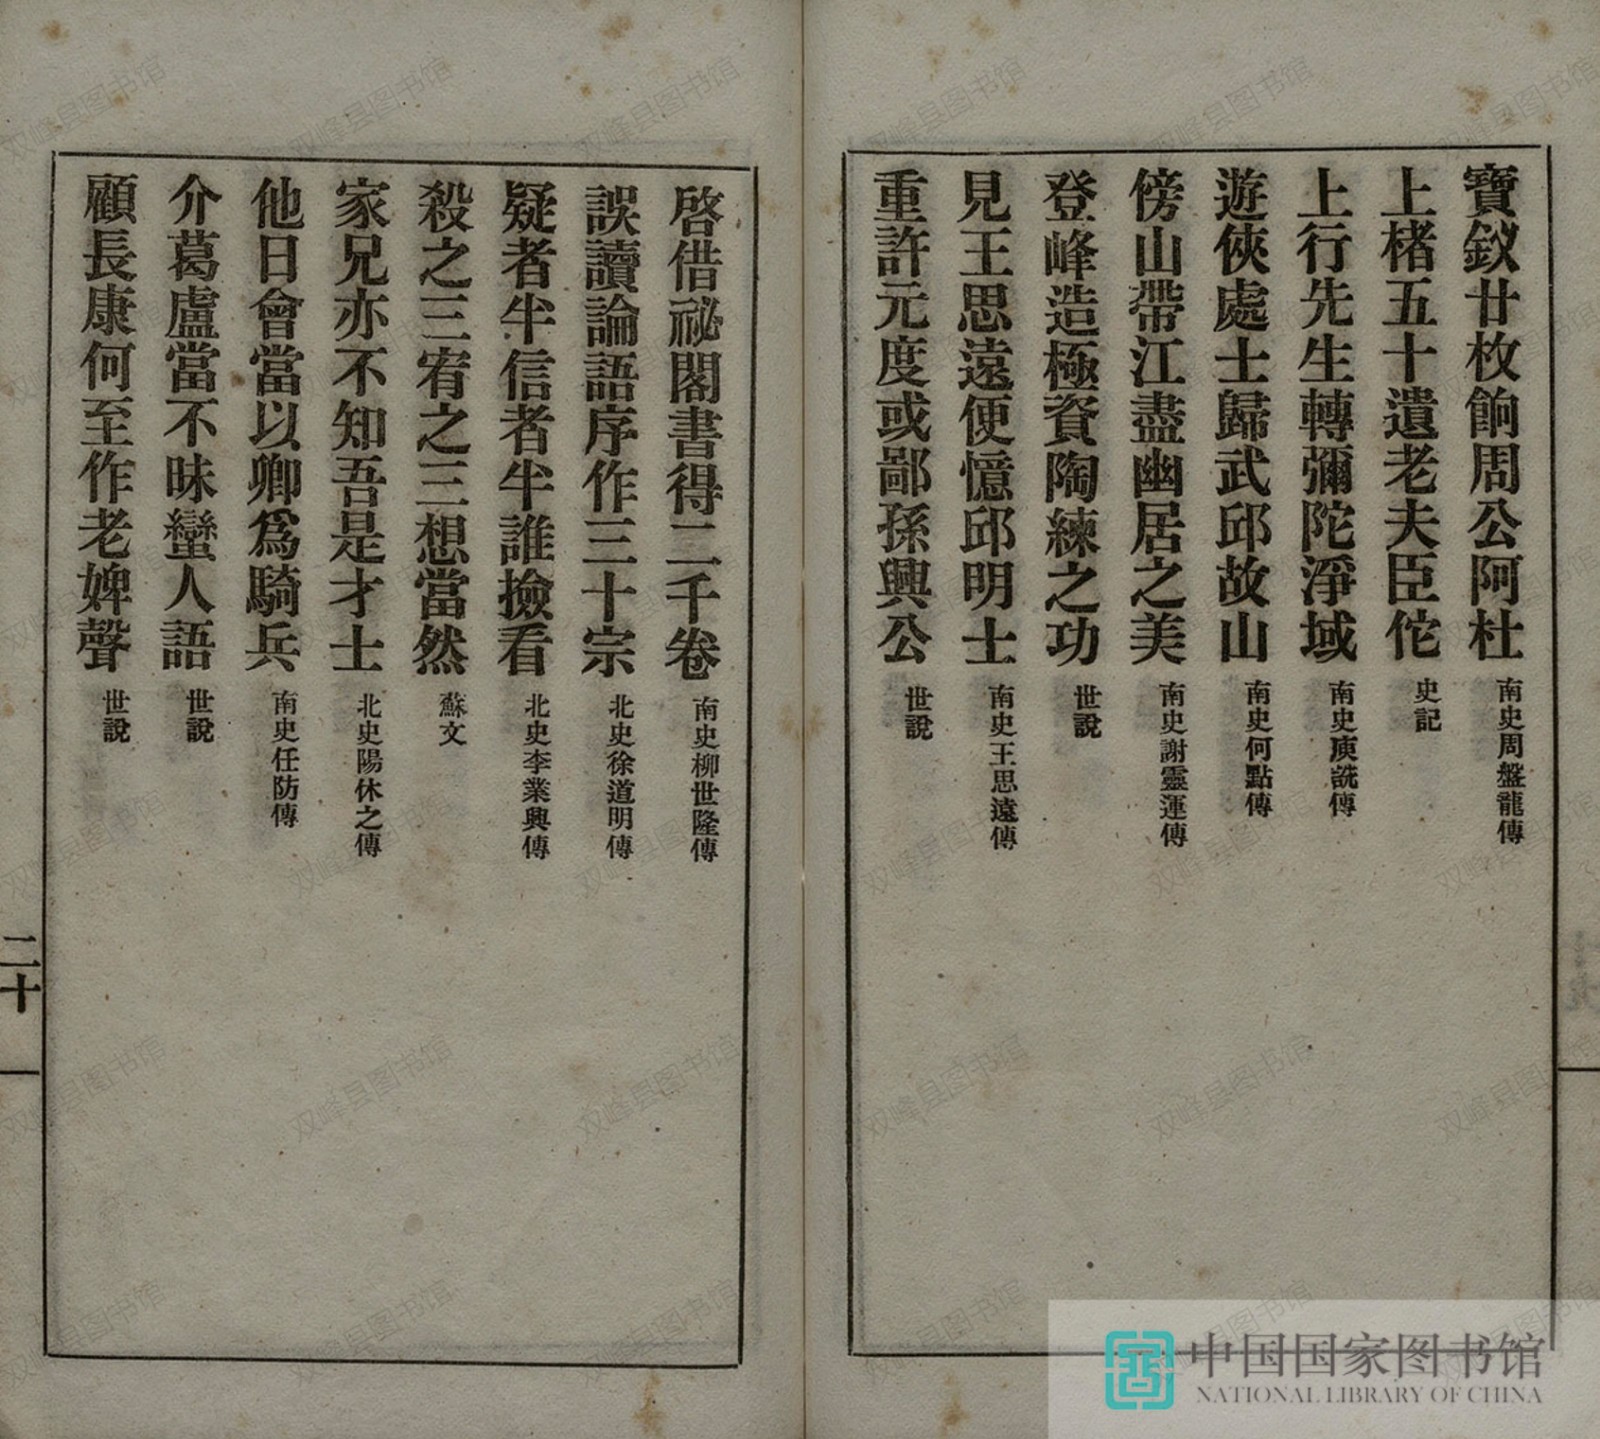 寶釵廿枚餉周公阿杜 南史周盤龍傳
上楮五十遺老夫臣佗 史記
上行先生轉彌陀淨域 南史庾詵傳
遊俠處士歸武邱故山 南史何點傳
傍山帶江盡幽居之美 南史謝靈運傳
登峰造極資陶練之功 世說
見王思遠便憶邱明士 南史王思遠傳
重許元度或鄙孫興公 世說
啓借祕閣書得二千卷 南史柳世隆傳
誤讀論語序作三十宗 北史徐道明傳
疑者半信者半誰撿看 北史李業興傳
殺之三宥之三想當然 蘇文
家兄亦不知吾是才士 北史陽休之傳
他日會當以卿爲騎兵 南史任防傳
介葛盧當不昧蠻人語 世說
顧長康何至作老婢聲 世說
二十
中国国家图书馆
NATIONAL LIBRARY OF CHINA
双峰县图书馆